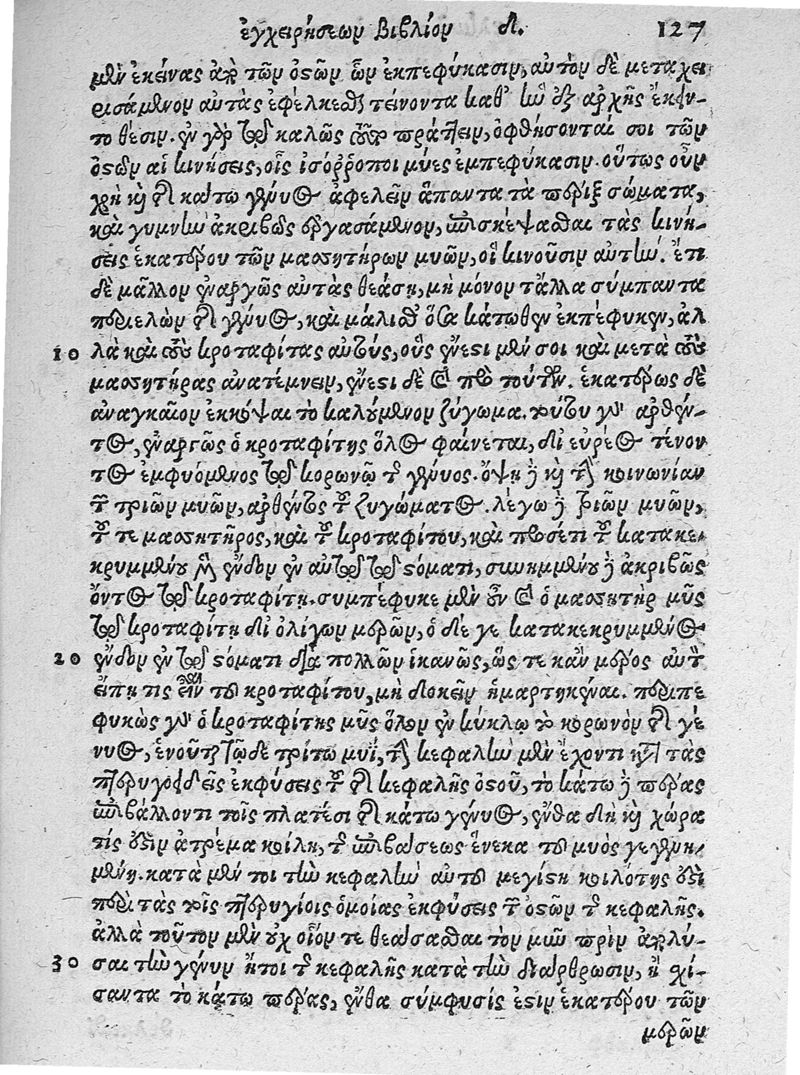 ἐγχειρήσεων βιβλίον δ. 127
μὲν ἐκείνας ἀπὸ τῶν ὀστῶν ὧν ἐκπεφύκασιν, αὐτὸν δὲ μεταχει
ρισάμενον αὐτὰς ἐφέλκεσθαι τείνοντα καθ' ἣν ἐξ ἀρχῆς ἔκειν-
το θέσιν. ἐν γὰρ τῷ καλῶς τοῦτο πράττειν, ὀφθήσονταί σοι τῶν
ὀστῶν αἱ κινήσεις, οἷς ἰσόρροποι μύες ἐμπεφύκασιν. οὕτως οὖν
χρὴ καὶ τῆς κάτω γένυος ἀφελεῖν ἅπαντα τὰ πέριξ σώματα,
καὶ γυμνὴν ἀκριβῶς ἐργασάμενον, ἐπισκέψασθαι τὰς κινή-
σεις ἑκατέρου τῶν μασητήρων μυῶν, οἳ κινοῦσιν αὐτήν. ἔτι
δὲ μᾶλλον ἐναργῶς αὐτὰς θεάσῃ, μὴ μόνον τἄλλα σύμπαντα
περιελὼν τῆς γένυος, καὶ μάλισθ' ὅσα κάτωθεν ἐκπέφυκεν, ἀλ
10 λὰ καὶ τοὺς κροταφίτας αὐτούς, οὓς ἔνεστι μέν σοι καὶ μετὰ τοὺς
μασητήρας ἀνατέμνειν, ἔνεστι δὲ καὶ πρὸ τούτων. ἑκατέρως δὲ
ἀναγκαῖον ἐκκόψαι τὸ καλούμενον ζύγωμα. τούτου γὰρ ἀρθέν-
τος, ἐναργῶς ὁ κροταφίτης ὅλος φαίνεται, δι' εὑρέος τένον
τος ἐμφυόμενος τῷ κορωνῷ τῆς γένυος. ὄψῃ δὲ καὶ τὴν κοινωνίαν
τῶν τριῶν μυῶν, ἀρθέντος τοῦ ζυγώματος. λέγω δὲ τριῶν μυῶν,
τοῦ τε μασητῆρος, καὶ τοῦ κροταφίτου, καὶ προσέτι τοῦ κατακε-
κρυμμένου μὲν ἔνδον ἐν αὐτῷ τῷ στόματι, συνημμένου δὲ ἀκριβῶς
ὄντος τῷ κροταφίτῃ. συμπέφυκε μὲν οὖν καὶ ὁ μασητὴρ μῦς
τῷ κροταφίτῃ δι' ὀλίγων μερῶν, ὁ δέ γε κατακεκρυμμένος
20 ἔνδον ἐν τῷ στόματι διὰ πολλῶν ἱκανῶς, ὥς τε κἂν μέρος αὐτὸ
εἴπῃ τις εἶναι τοῦ κροταφίτου, μὴ δοκεῖν ἡμαρτηκέναι. περιπε
φυκὼς γὰρ ὁ κροταφίτης μῦς ὅλον ἐν κύκλῳ τὸ κορωνὸν τῆς γέ
νυος, ἑνοῦται τῷδε τρίτῳ μυΐ, τὴν κεφαλὴν μὲν ἔχοντι κατὰ τὰς
πτερυγοειδεῖς ἐκφύσεις τοῦ τῆς κεφαλῆς ὀστοῦ, τὸ κάτω δὲ πέρας
ἐπιβάλλοντι τοῖς πλατέσι τῆς κάτω γένυος, ἔνθα δὴ καὶ χώρα
τίς ἐστιν ἀτρέμα κοίλη, τῆς ἐπιβάσεως ἕνεκα τοῦ μυὸς γεγενη-
μένη. κατὰ μέν τοι τὴν κεφαλὴν αὐτοῦ μεγίστη κοιλότης ἐστὶ
περὶ τὰς τοῖς πτερυγίοις ὁμοίας ἐκφύσεις τῶν ὀστῶν τῆς κεφαλῆς.
ἀλλὰ τοῦτον μὲν οὐχ οἷόν τε θεάσασθαι τὸν μῦν πρὶν ἀπολύ-
30 σαι τὴν γένυν ἤτοι τῆς κεφαλῆς κατὰ τὴν διάρθρωσιν, ἢ σχί-
σαντα τὸ κάτω πέρας, ἔνθα σύμφυσίς ἐστιν ἑκατέρου τῶν
μερῶν